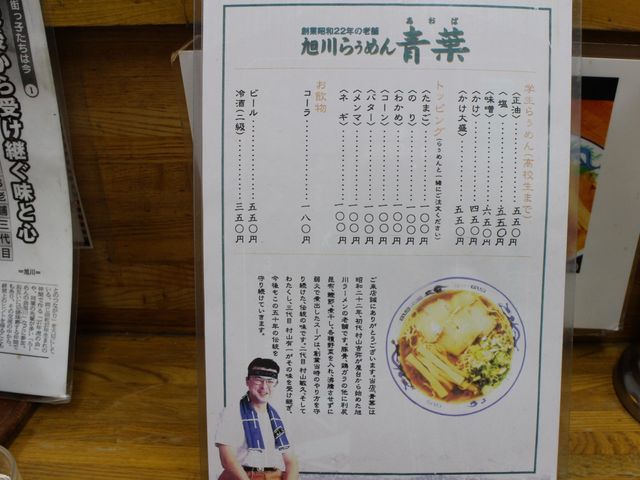 創業昭和22年の老舗
旭川らぅめん 青葉
あおば
学生らぅめん(高校生まで)
〈正油〉 五五〇円
〈塩〉 五五〇円
〈味噌〉 六五〇円
〈かけ〉 四五〇円
〈かけ大盛〉 五五〇円
トッピング(らぅめんと一緒にご注文ください)
〈たまご〉 一〇〇円
〈のり〉 一〇〇円
〈わかめ〉 一〇〇円
〈コーン〉 一〇〇円
〈バター〉 一〇〇円
〈メンマ〉 一〇〇円
〈ネギ〉 一〇〇円
お飲物
コーラ 一八〇円
ビール 五五〇円
冷酒(二級) 三五〇円
ご来店誠にありがとうございます。当店「青葉」は
昭和二十二年、初代村山吉弥が屋台から始めた旭
川ラーメンの老舗です。豚骨、鶏ガラの他に利尻
昆布、鰹節、煮干し、各種野菜を入れ、沸騰させずに
弱火で煮出したスープは、創業当時のやり方を守
り続けた、伝統の味です。二代目 村山敏久、そして
わたくし、三代目 村山有一がその味を受け継ぎ、
今後もこの五十年の伝統を
守り続けていきます。
街っ子たちは今 1
から受け継ぐ味と心
老舗三代目
=旭川=